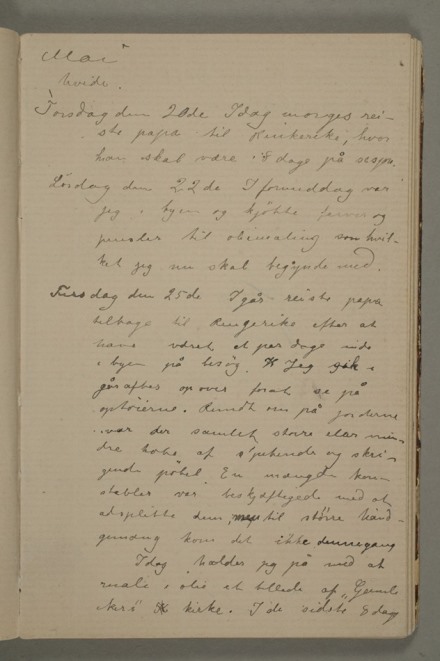 Mai
hvide.
Torsdag den 20de Idag morges rei-
ste papa til Ringerike, hvor
han skal være i 8 dage på
Lørdag den 22de I formiddag var
jeg i byen og kjøbte farver og
pensler til oliemaling som hvil-
ket jeg nu skal begynde med.
Tirsdag den 25de Igår reiste papa
tilbage til Ringerike efter at
have været et par dage inde
i byen på besøg. Jeg gik i
går aftes op over forat se på
optøierne. Rundt om på jorderne
var der samlet større eler min-
dre hobe af pibende og skri-
gende pøbel. En mængde kon-
stabler var beskjæftigede med at
adsplitte dem, men til større hånd-
gemæng kom det ikke dennegang
Idag holder jeg på med at
male i olie et billede af „Gamle
Akers kirke. I de sidste 8 dag